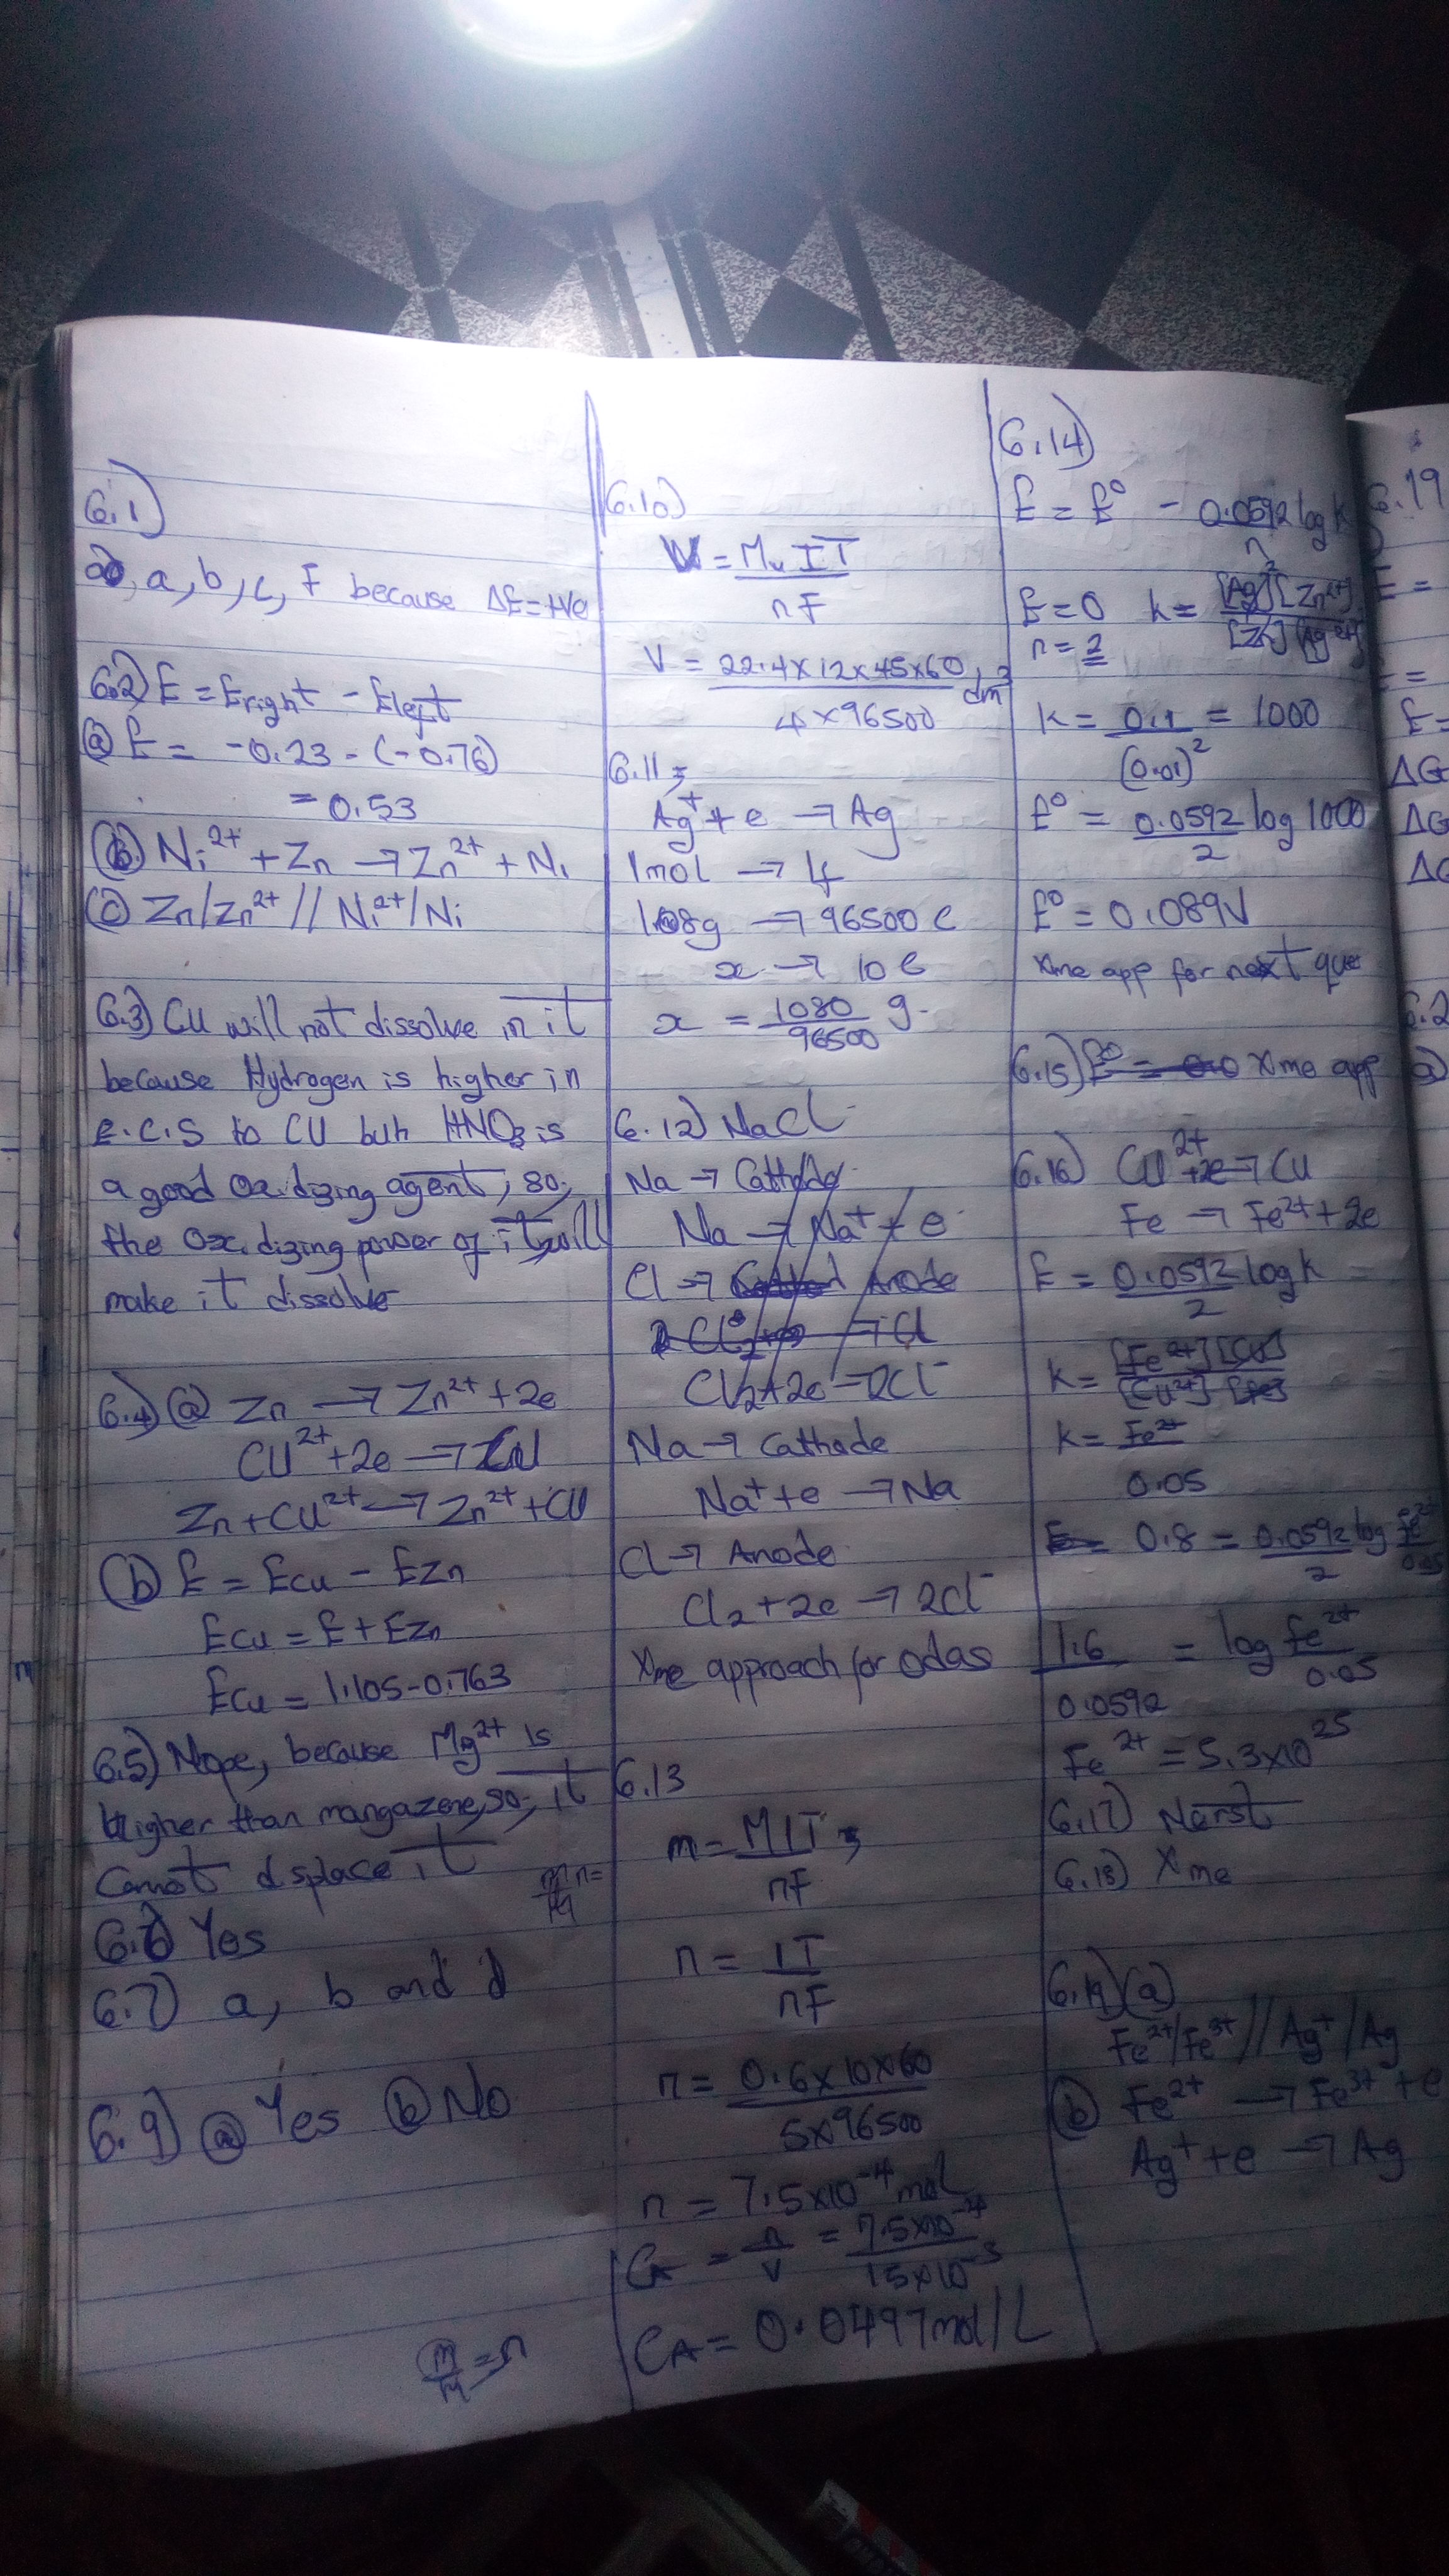 6.1)
a, b, c, F because ΔE=+Ve
6.2) E = Eright - Eleft
(a) E = -0.23 - (-0.76)
= 0.53
(b) Ni²⁺ + Zn → Zn²⁺ + Ni
(c) Zn/Zn²⁺ // Ni²⁺/Ni
6.3) CU will not dissolve in it
because Hydrogen is higher in
e.c.s to CU buh HNO3 is
a good Oxidizing agent, so,
the Oxidizing power of it will
make it dissolve
6.4) (a) Zn → Zn²⁺ + 2e
CU²⁺ + 2e → CU
Zn + CU²⁺ → Zn²⁺ + CU
(b) E = Ecu - EZn
Ecu = E + EZn
Ecu = 1.105 - 0.763
6.5) Nope, because Mg²⁺ is
higher than mangazene, so, it
Cannot displace it
m/M n=
6.6 Yes
6.7) a, b and d
6.9) (a) Yes (b) No
m/M = n
6.10)
V = Mv IT
nF
V = 22.4 x 12 x 45 x 60 dm³
4 x 96500
6.11
Ag⁺ + e → Ag
1mol → 1f
108g → 96500 C
x → 10 C
x = 1080 g.
96500
6.12) NaCl
Na → Cathode
Na → Na⁺ + e
Cl → Anode
Cl2 + 2e → 2Cl⁻
Na → Cathode
Na⁺ + e → Na
Cl → Anode
Cl2 + 2e → 2Cl⁻
Xme approach for odas
6.13
m = MIT
nF
n = IT
nF
n = 0.6x10x60
5x96500
n = 7.5x10⁻⁴ mol
CA = n = 7.5x10⁻⁴
V 15x10⁻³
CA = 0.0497 mol/L
6.14)
E = E⁰ - 0.0592 log k
n
E = 0 k = [Ag]²[Zn²⁺]
n = 2
k = 0.1 = 1000
(0.01)²
E⁰ = 0.0592 log 1000
2
E⁰ = 0.089V
Xme app for next que
6.15) Xme app
6.16) CU²⁺ +2e → CU
Fe → Fe²⁺ + 2e
E = 0.0592 log k
2
k = [Fe²⁺][CU]
[CU²⁺] [Fe]
k = Fe²⁺
0.05
0.8 = 0.0592 log Fe²⁺
2 0.05
1.6 = log Fe²⁺
0.0592 0.05
Fe²⁺ = 5.3x10²⁵
6.17) Nerst
6.18) Xme
6.19) (a)
Fe²⁺/Fe³⁺ // Ag⁺/Ag
(b) Fe²⁺ → Fe³⁺ + e
Ag⁺ + e → Ag
6.19
E =
E =
ΔG
ΔG
ΔG